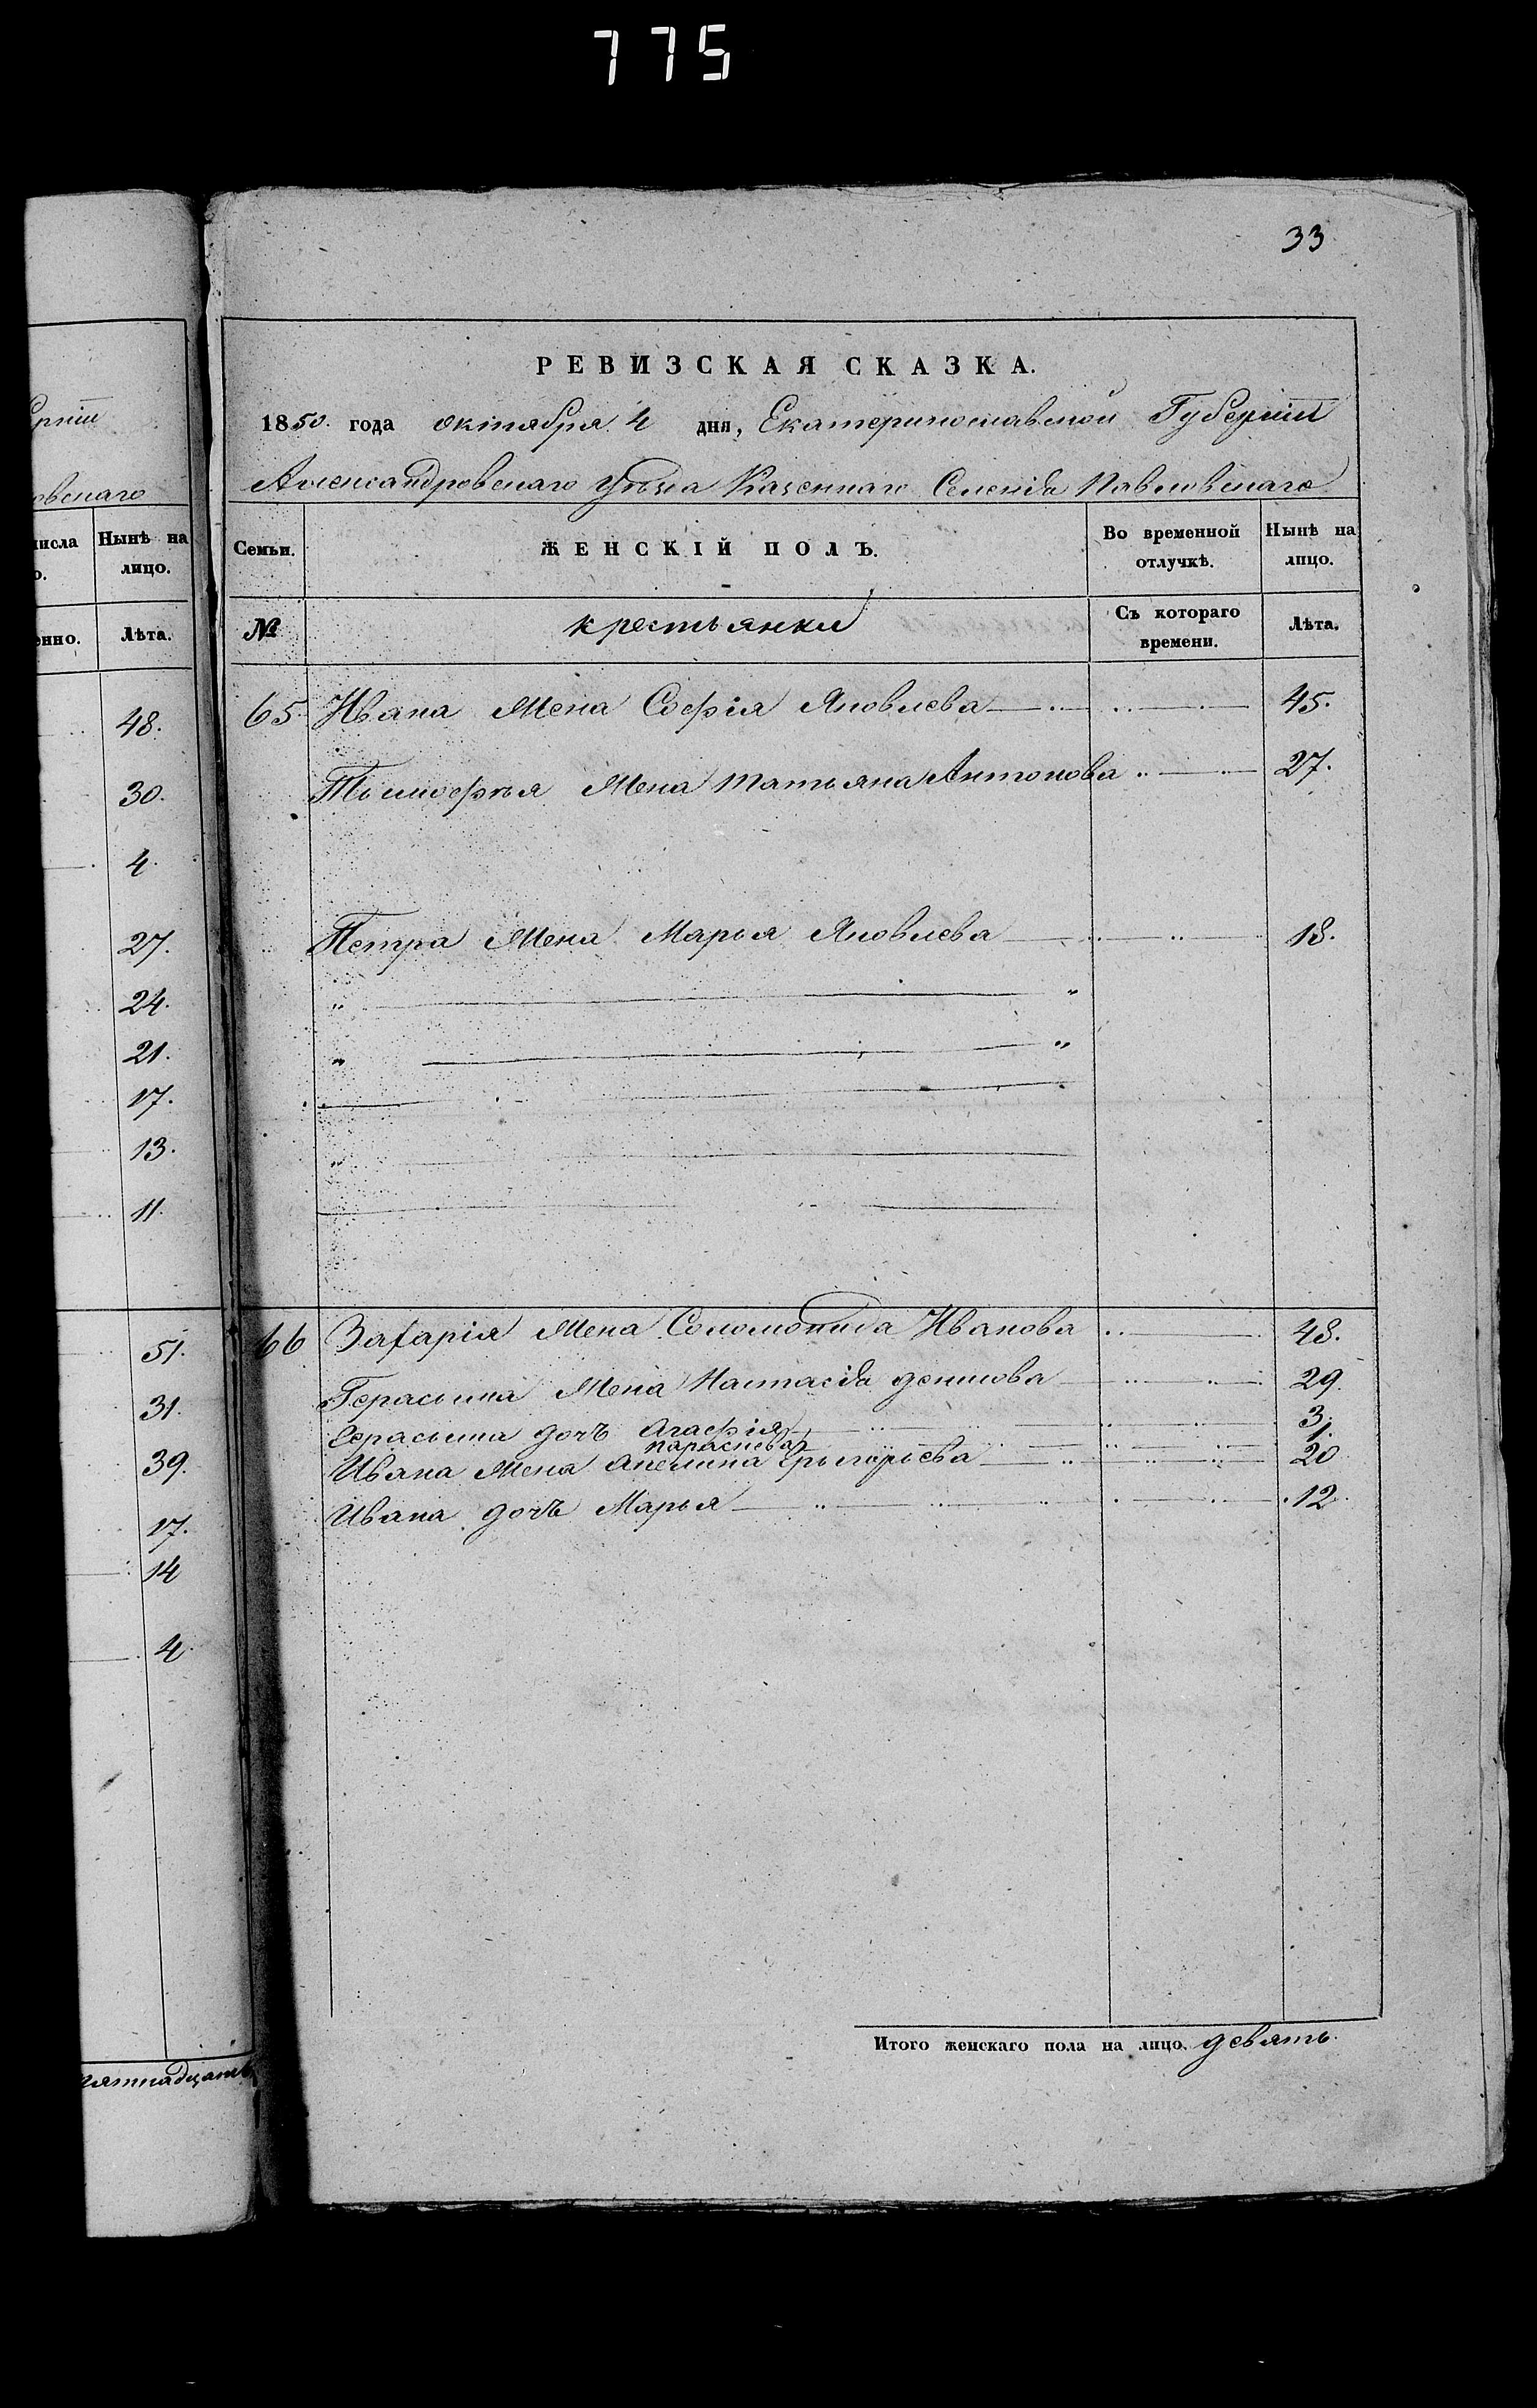 775
33
рніи
РЕВИЗСКАЯ СКАЗКА.
1850. года октября 4 дня, Екатеринославской Губерніи
Александровскаго уѣзда Казеннаго Селенія Павловскаго
овскаго
числа
о.
Нынѣ на лицо.
енно.
Лѣта.
Семьи.
ЖЕНСКІЙ ПОЛЪ.
Во временной отлучкѣ.
Нынѣ на лицо.
№
крестьянки
Съ котораго времени.
Лѣта.
48.
30.
4.
27.
24.
21.
17.
13.
11.
51.
31.
39.
17.
14
4.
пятнадцать
65. Ивана Жена Софія Яковлева 45.
Тимофѣя Жена Татьяна Антонова 27.
Петра Жена Марья Яковлева 18.
66 Захарія Жена Соломонида Иванова 48.
Герасима Жена Настасія Денисова 29.
Герасима дочъ Агафія 3.
Параскева 1.
Ивана Жена Акелина Григорьева 20
Ивана дочъ Марья 12.
Итого женскаго пола на лицо девять.